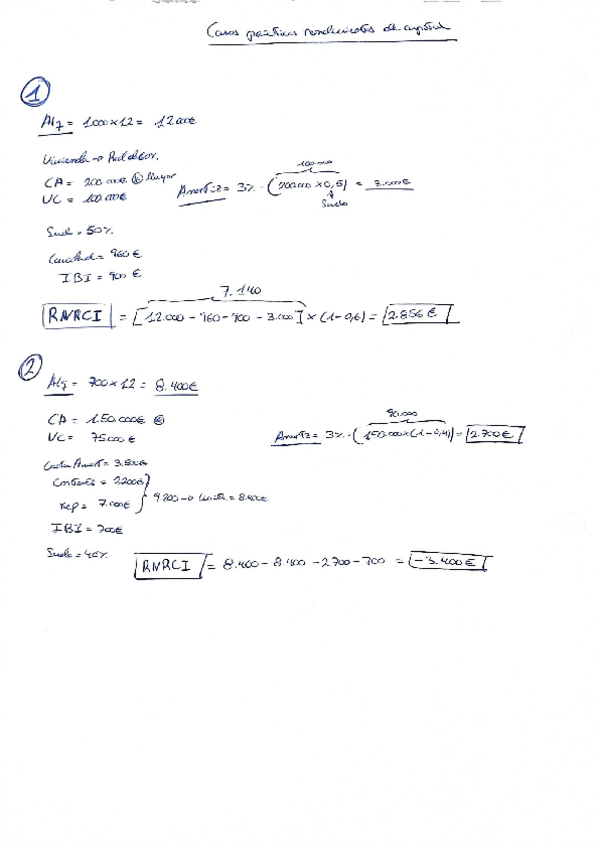 Casos prácticos rendimientos de capital
1
Alq = 1000 x 12 = 12000€
Vivienda → Reducción.
CA = 200.000€ Mayor
VC = 100.000€
100.000
Amortiz = 3% · (200.000 x 0,5) = 3.000€
Suelo
Suel = 50%
Comunidad = 960 €
IBI = 900 €
7.140
RNRCI = [12.000 - 960 - 900 - 3.000] x (1 - 0,6) = 2.856 €
2
Alq = 700 x 12 = 8.400€
CA = 150.000€
VC = 75000 €
90.000
Amortz = 3% · (150.000 x (1 - 0,4)) = 2.700 €
Intereses = 2200€
Rep = 7.000€
9.200 → Límite = 8.400€
IBI = 700€
Suelo = 40%
RNRCI = 8.400 - 8.400 - 2.700 - 700 = -3.400 €